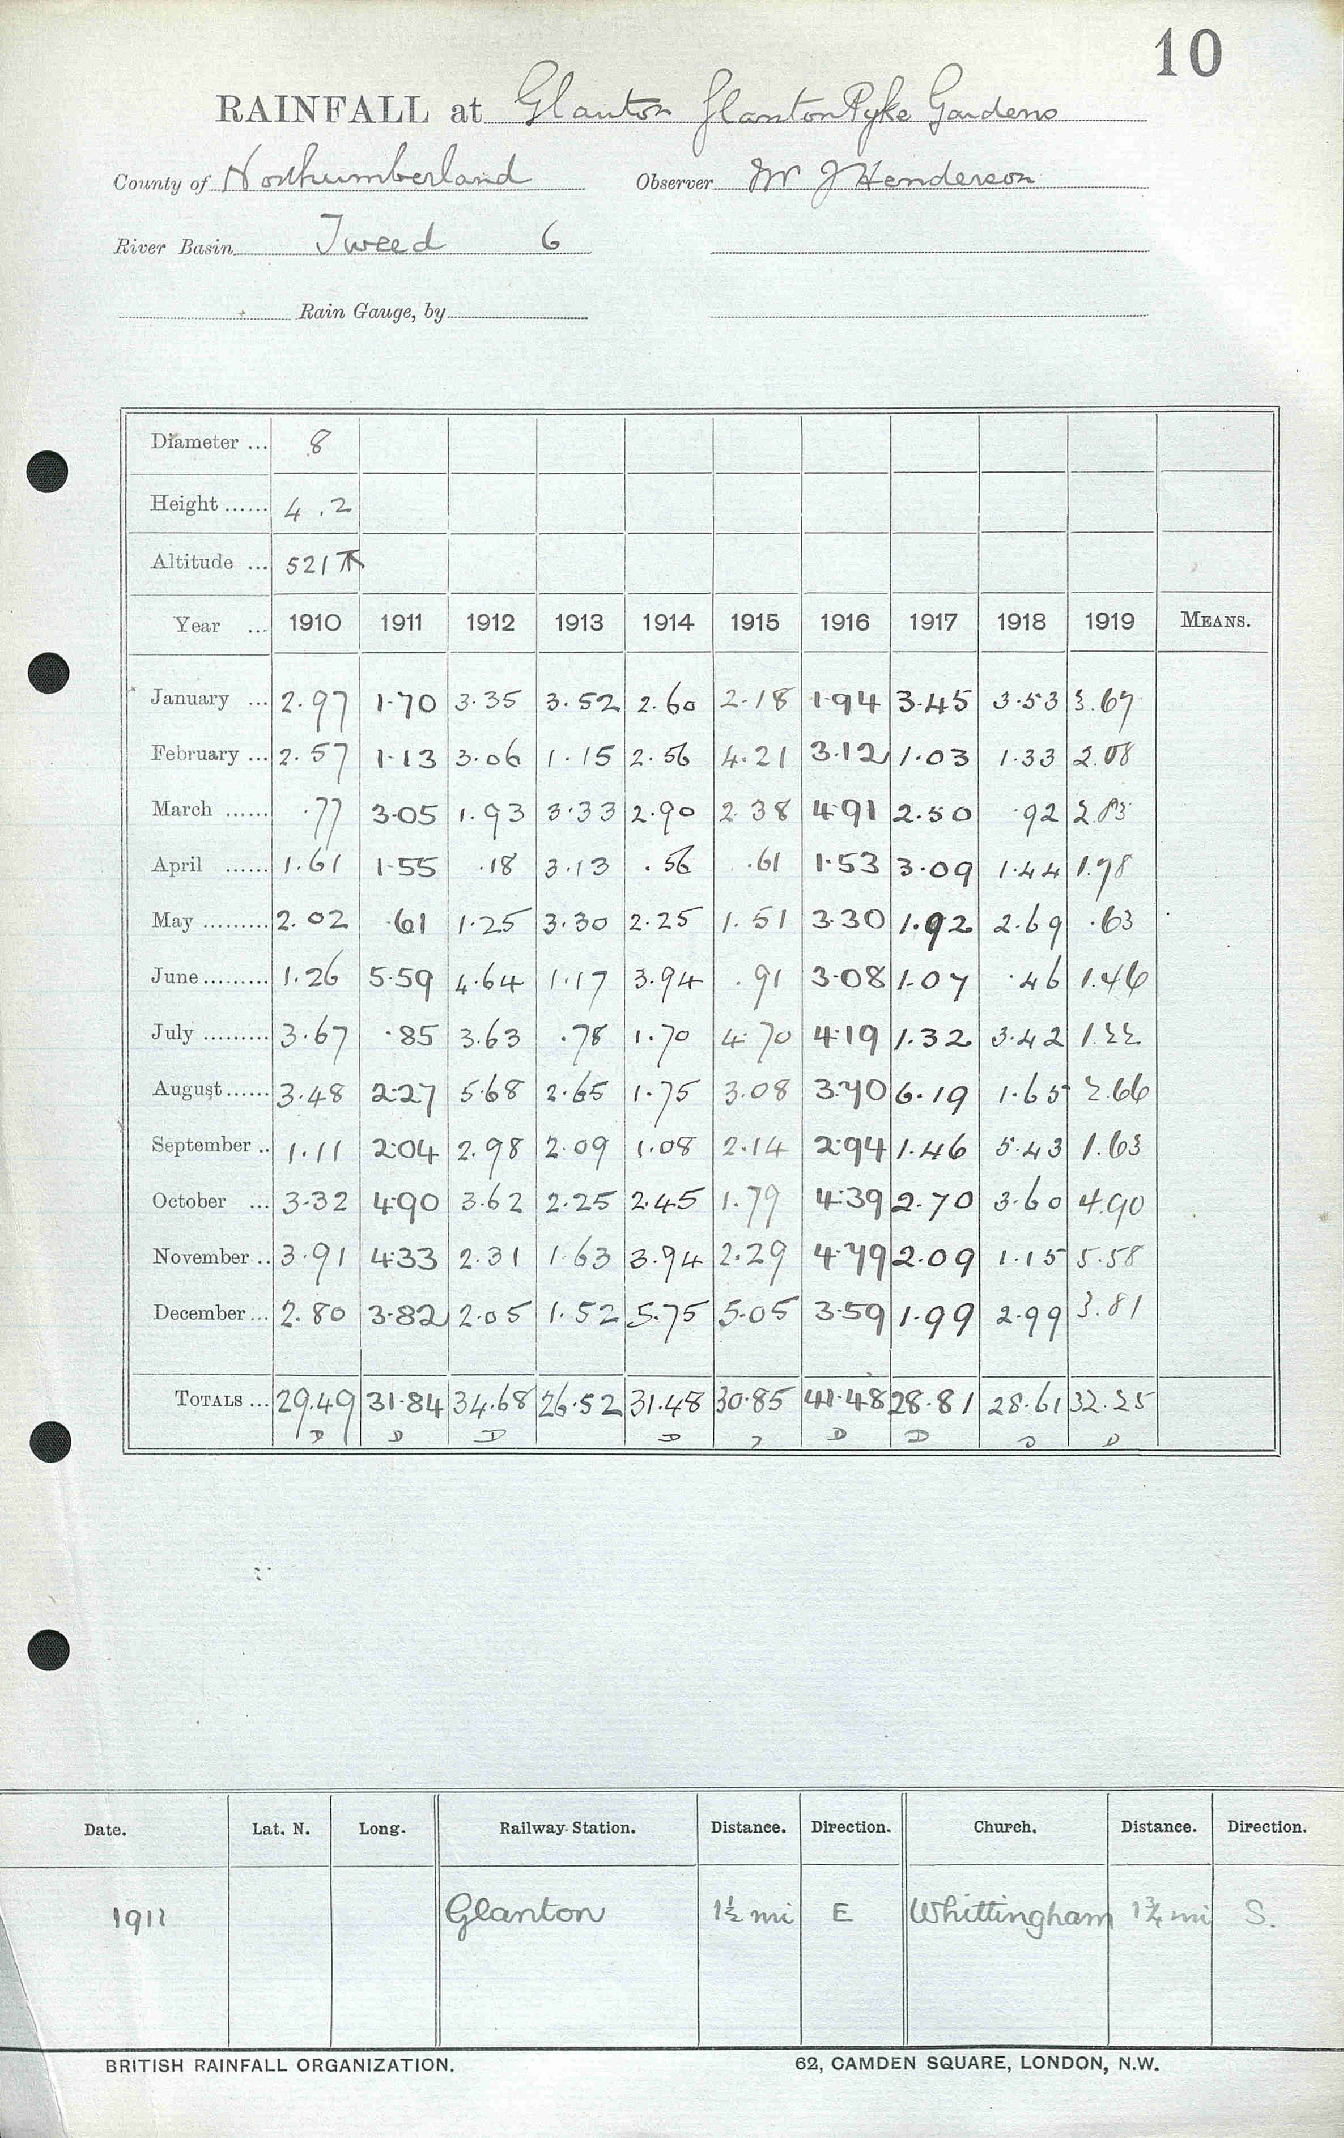 10
RAINFALL at Glanton Glanton Pyke Gardens
County of Northumberland Observer Mr J Henderson
River Basin Tweed 6
Rain Gauge, by
Diameter ... 8
Height ...... 4 .2
Altitude ... 521
Year ... 1910 1911 1912 1913 1914 1915 1916 1917 1918 1919 MEANS.
January ... 2.97 1.70 3.35 3.52 2.60 2.18 1.94 3.45 3.53 3.67
February ... 2.57 1.13 3.06 1.15 2.56 4.21 3.12 1.03 1.33 2.08
March ...... .77 3.05 1.93 3.33 2.90 2.38 4.91 2.50 .92 2.83
April ...... 1.61 1.55 .18 3.13 .56 .61 1.53 3.09 1.44 1.78
May ......... 2.02 .61 1.25 3.30 2.25 1.51 3.30 1.92 2.69 .63
June ......... 1.26 5.59 4.64 1.17 3.94 .91 3.08 1.07 .46 1.46
July ......... 3.67 .85 3.63 .78 1.70 4.70 4.19 1.32 3.42 1.22
August ...... 3.48 2.27 5.68 2.65 1.75 3.08 3.70 6.19 1.65 2.66
September .. 1.11 2.04 2.98 2.09 1.08 2.14 2.94 1.46 5.43 1.63
October ... 3.32 4.90 3.62 2.25 2.45 1.79 4.39 2.70 3.60 4.90
November .. 3.91 4.33 2.31 1.63 3.94 2.29 4.79 2.09 1.15 5.58
December ... 2.80 3.82 2.05 1.52 5.75 5.05 3.59 1.99 2.99 3.81
TOTALS ... 29.49 31.84 34.68 26.52 31.48 30.85 41.48 28.81 28.61 32.25
D D D D D D D D D
Date. Lat. N. Long. Railway Station. Distance. Direction. Church. Distance. Direction.
1911 Glanton 1½ mi E Whittingham 1¾ mi S.
BRITISH RAINFALL ORGANIZATION. 62, CAMDEN SQUARE, LONDON, N.W.